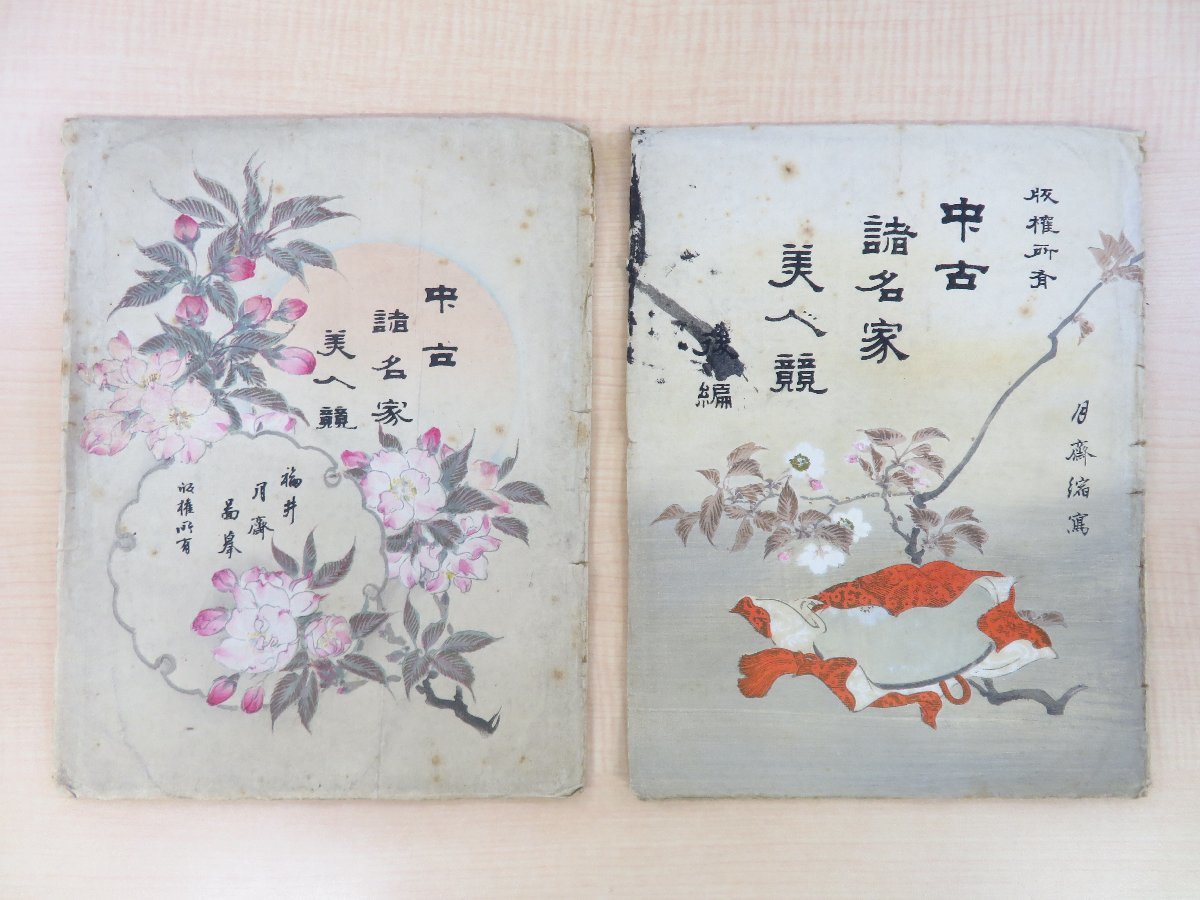 中古
諸名家
美人競
福井
月齋
摹
版權所有
版權所有
月齋縮寫
中古
諸名家
美人競
後編